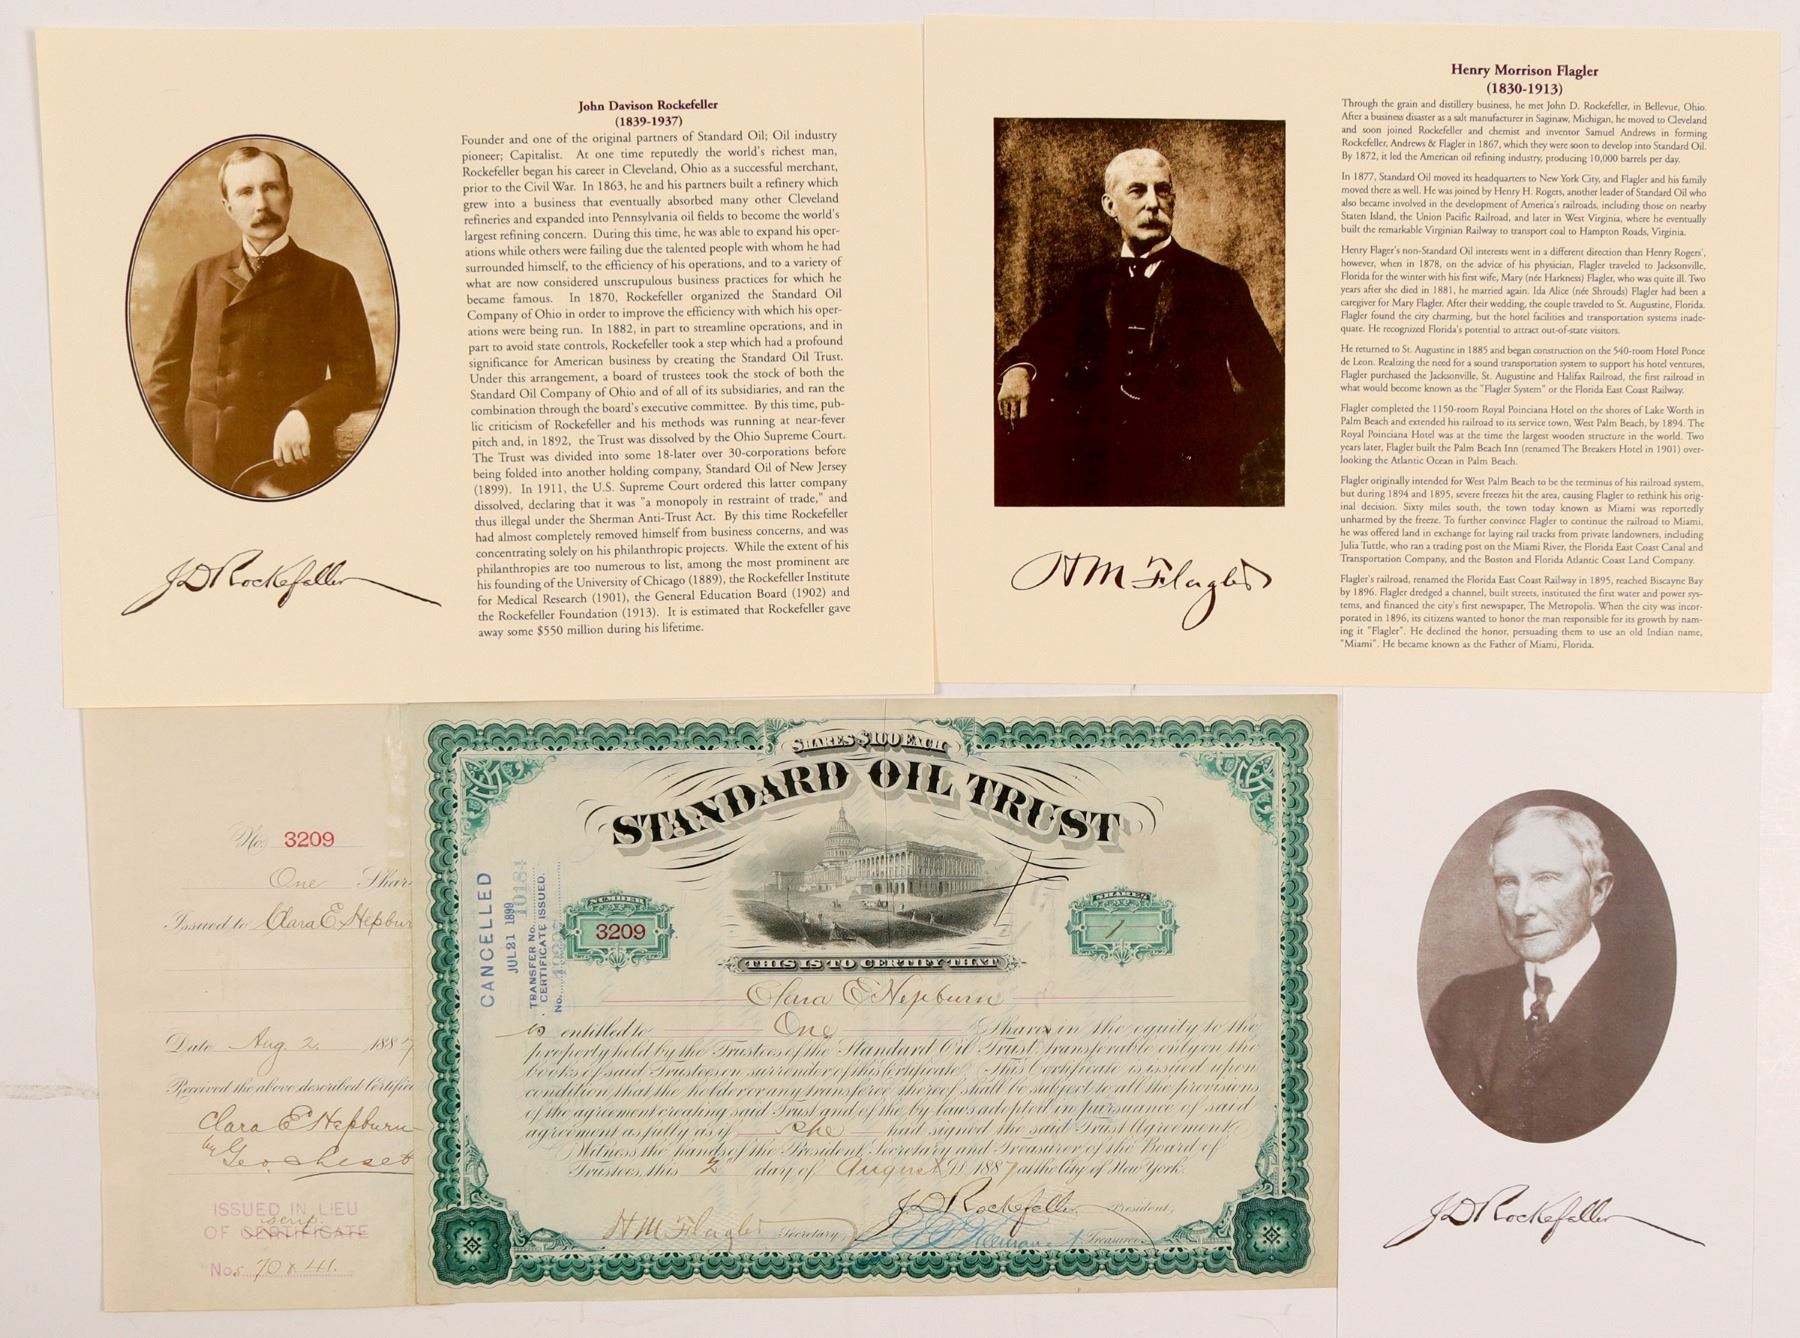 John Davison Rockefeller
(1839-1937)
Founder and one of the original partners of Standard Oil; Oil industry
pioneer; Capitalist. At one time reputedly the world's richest man,
Rockefeller began his career in Cleveland, Ohio as a successful merchant,
prior to the Civil War. In 1863, he and his partners built a refinery which
grew into a business that eventually absorbed many other Cleveland
refineries and expanded into Pennsylvania oil fields to become the world's
largest refining concern. During this time, he was able to expand his oper-
ations while others were failing due the talented people with whom he had
surrounded himself, to the efficiency of his operations, and to a variety of
what are now considered unscrupulous business practices for which he
became famous. In 1870, Rockefeller organized the Standard Oil
Company of Ohio in order to improve the efficiency with which his oper-
ations were being run. In 1882, in part to streamline operations, and in
part to avoid state controls, Rockefeller took a step which had a profound
significance for American business by creating the Standard Oil Trust.
Under this arrangement, a board of trustees took the stock of both the
Standard Oil Company of Ohio and of all of its subsidiaries, and ran the
combination through the board's executive committee. By this time, pub-
lic criticism of Rockefeller and his methods was running at near-fever
pitch and, in 1892, the Trust was dissolved by the Ohio Supreme Court.
The Trust was divided into some 18-later over 30-corporations before
being folded into another holding company, Standard Oil of New Jersey
(1899). In 1911, the U.S. Supreme Court ordered this latter company
dissolved, declaring that it was "a monopoly in restraint of trade," and
thus illegal under the Sherman Anti-Trust Act. By this time Rockefeller
had almost completely removed himself from business concerns, and was
concentrating solely on his philanthropic projects. While the extent of his
philanthropies are too numerous to list, among the most prominent are
his founding of the University of Chicago (1889), the Rockefeller Institute
for Medical Research (1901), the General Education Board (1902) and
the Rockefeller Foundation (1913). It is estimated that Rockefeller gave
away some $550 million during his lifetime.
J D Rockefeller
Henry Morrison Flagler
(1830-1913)
Through the grain and distillery business, he met John D. Rockefeller, in Bellevue, Ohio.
After a business disaster as a salt manufacturer in Saginaw, Michigan, he moved to Cleveland
and soon joined Rockefeller and chemist and inventor Samuel Andrews in forming
Rockefeller, Andrews & Flagler in 1867, which they were soon to develop into Standard Oil.
By 1872, it led the American oil refining industry, producing 10,000 barrels per day.
In 1877, Standard Oil moved its headquarters to New York City, and Flagler and his family
moved there as well. He was joined by Henry H. Rogers, another leader of Standard Oil who
also became involved in the development of America's railroads, including those on nearby
Staten Island, the Union Pacific Railroad, and later in West Virginia, where he eventually
built the remarkable Virginian Railway to transport coal to Hampton Roads, Virginia.
Henry Flager's non-Standard Oil interests went in a different direction than Henry Rogers',
however, when in 1878, on the advice of his physician, Flagler traveled to Jacksonville,
Florida for the winter with his first wife, Mary (née Harkness) Flagler, who was quite ill. Two
years after she died in 1881, he married again. Ida Alice (née Shrouds) Flagler had been a
caregiver for Mary Flagler. After their wedding, the couple traveled to St. Augustine, Florida.
Flagler found the city charming, but the hotel facilities and transportation systems inade-
quate. He recognized Florida's potential to attract out-of-state visitors.
He returned to St. Augustine in 1885 and began construction on the 540-room Hotel Ponce
de Leon. Realizing the need for a sound transportation system to support his hotel ventures,
Flagler purchased the Jacksonville, St. Augustine and Halifax Railroad, the first railroad in
what would become known as the "Flagler System" or the Florida East Coast Railway.
Flagler completed the 1150-room Royal Poinciana Hotel on the shores of Lake Worth in
Palm Beach and extended his railroad to its service town, West Palm Beach, by 1894. The
Royal Poinciana Hotel was at the time the largest wooden structure in the world. Two
years later, Flagler built the Palm Beach Inn (renamed The Breakers Hotel in 1901) over-
looking the Atlantic Ocean in Palm Beach.
Flagler originally intended for West Palm Beach to be the terminus of his railroad system,
but during 1894 and 1895, severe freezes hit the area, causing Flagler to rethink his orig-
inal decision. Sixty miles south, the town today known as Miami was reportedly
unharmed by the freeze. To further convince Flagler to continue the railroad to Miami,
he was offered land in exchange for laying rail tracks from private landowners, including
Julia Tuttle, who ran a trading post on the Miami River, the Florida East Coast Canal and
Transportation Company, and the Boston and Florida Atlantic Coast Land Company.
Flagler's railroad, renamed the Florida East Coast Railway in 1895, reached Biscayne Bay
by 1896. Flagler dredged a channel, built streets, instituted the first water and power sys-
tems, and financed the city's first newspaper, The Metropolis. When the city was incor-
porated in 1896, its citizens wanted to honor the man responsible for its growth by nam-
ing it "Flagler". He declined the honor, persuading them to use an old Indian name,
"Miami". He became known as the Father of Miami, Florida.
H M Flagler
No. 3209
One Shar
Issued to Clara E. Hepbur
Date Aug. 2. 1887
Received the above described Certific
Clara E Hepburn
by Geo.
ISSUED IN LIEU
scrip
OF CERTIFICATE
Nos 70 & 41.
SHARES $100 EACH
STANDARD OIL TRUST
CANCELLED
JUL 21 1899
TRANSFER NO. 10184
CERTIFICATE ISSUED.
No.
NUMBER
3209
SHARES
1
THIS IS TO CERTIFY THAT
Clara E Hepburn
is entitled to One Share in the equity to the
property held by the Trustees of the Standard Oil Trust, transferable only on the
books of said Trustees on surrender of this Certificate. This Certificate is issued upon
condition that the holder or any transferee thereof shall be subject to all the provisions
of the agreement creating said Trust and of the by-laws adopted in pursuance of said
agreement as fully as if she had signed the said Trust Agreement.
Witness the hands of the President, Secretary and Treasurer of the Board of
Trustees, this 2 day of August A.D. 1887 at the City of New York.
J D Rockefeller President,
H M Flagler Secretary, Treasurer
J D Rockefeller